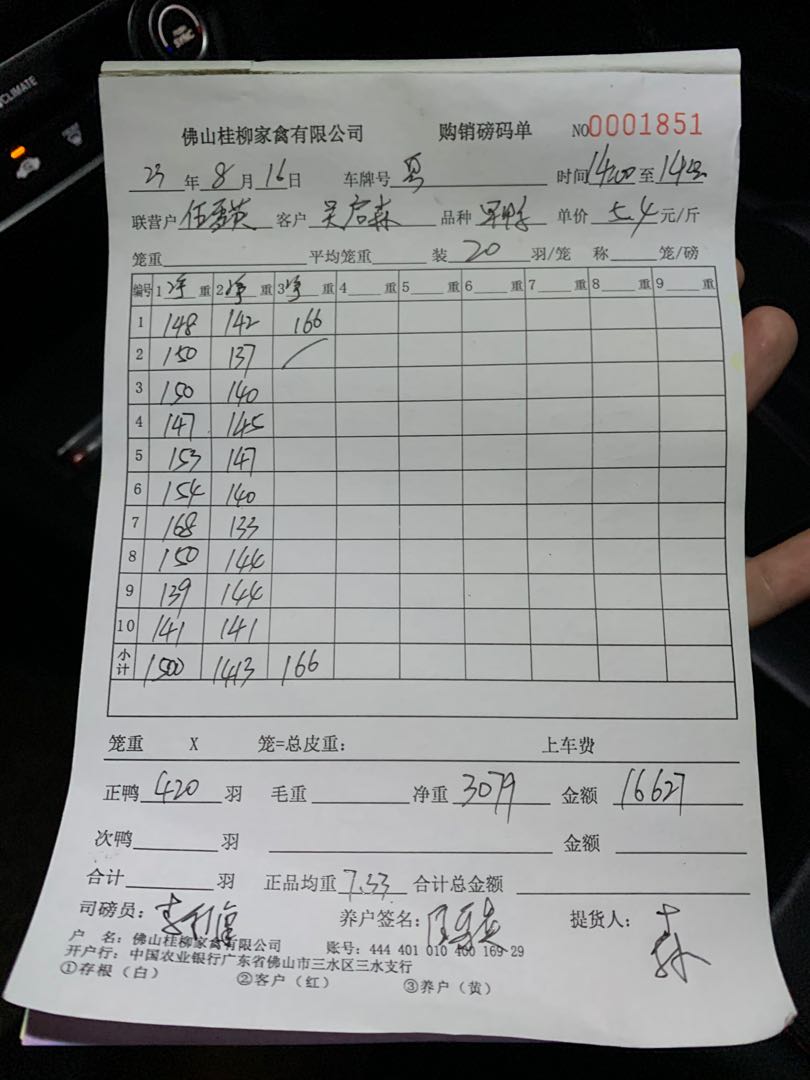 CLIMATE
SYNC
佛山桂柳家禽有限公司 购销磅码单 NO0001851
23年8月16日 车牌号 粤 时间1400至
联营户 客户 吴启森 品种 单价 5.4 元/斤
笼重 平均笼重 装 20 羽/笼 称 笼/磅
编号 1净重 2净重 3净重 4 重 5 重 6 重 7 重 8 重 9 重
1 148 142 166
2 150 137
3 150 140
4 147 145
5 153 147
6 154 140
7 168 133
8 150 144
9 139 144
10 141 141
小计 1500 1413 166
笼重 X 笼=总皮重: 上车费
正鸭 420 羽 毛重 净重 3079 金额 16627
次鸭 羽 金额
合计 羽 正品均重 7.33 合计总金额
司磅员: 养户签名: 提货人:
户 名: 佛山桂柳家禽有限公司 账号: 444 401 010 400 169 29
开户行: 中国农业银行广东省佛山市三水区三水支行
①存根(白) ②客户(红) ③养户(黄)